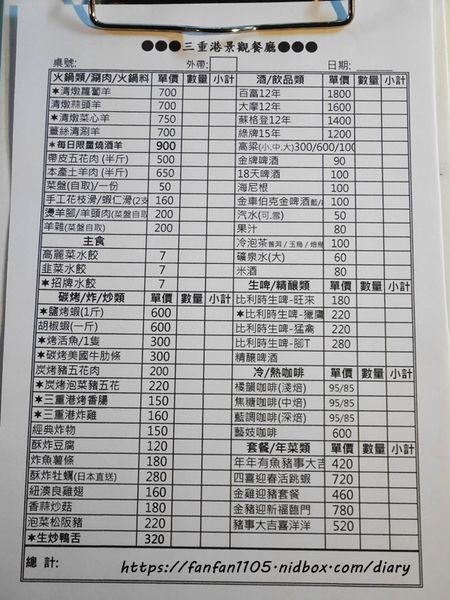 ●●●三重港景觀餐廳●●●
桌號: 外帶: 日期:
火鍋類/涮肉/火鍋料 單價 數量 小計
＊清燉蘿蔔羊 700
清燉蒜頭羊 700
＊清燉菜心羊 750
薑絲清涮羊 700
＊每日限量燒酒羊 900
帶皮五花肉 (半斤) 500
本產土羊肉 (半斤) 650
菜盤(自取)/一份 50
手工花枝滑/蝦仁滑(2支 160
燙羊腳/羊頭肉(菜盤自取 200
羊雜(菜盤自取) 200
主食
高麗菜水餃 7
韭菜水餃 7
＊招牌水餃 7
碳烤/炸/炒類 單價 數量 小計
＊鹽烤蝦(1斤) 600
胡椒蝦(一斤) 600
＊烤活魚/1隻 300
＊碳烤美國牛肋條 300
炭烤豬五花肉 200
＊炭烤泡菜豬五花 220
＊三重港烤香腸 150
＊三重港炸雞 160
經典炸物 150
酥炸豆腐 120
炸魚薯條 180
酥炸牡蠣(日本直送) 280
紐澳良雞翅 160
香蒜炒菇 180
泡菜松阪豬 220
＊生炒鴨舌 320
酒/飲品類 單價 數量 小計
百富12年 1800
大摩12年 1600
蘇格登12年 1400
綠牌15年 1200
高粱(小.中.大) 300/600/100
金牌啤酒 90
18天啤酒 100
海尼根 100
金車伯克金啤酒 100
汽水(可.雪) 50
果汁 80
冷泡茶 100
礦泉水(大) 60
米酒 80
生啤/精釀類 單價 數量 小計
比利時生啤-旺來 180
＊比利時生啤-獵鷹 220
比利時生啤-猛禽 220
比利時生啤-腳T 280
精釀啤酒
冷/熱咖啡 單價 數量 小計
橘韻咖啡(淺焙) 95/85
焦糖咖啡(中焙) 95/85
藍調咖啡(深焙) 95/85
藝妓咖啡 600
套餐/年菜類 單價 數量 小計
年年有魚豬事大吉 420
四喜迎春活跳蝦 720
金雞迎豬套餐 460
金豬迎新福臨門 780
豬事大吉喜洋洋 520
總 計:
https://fanfan1105.nidbox.com/diary